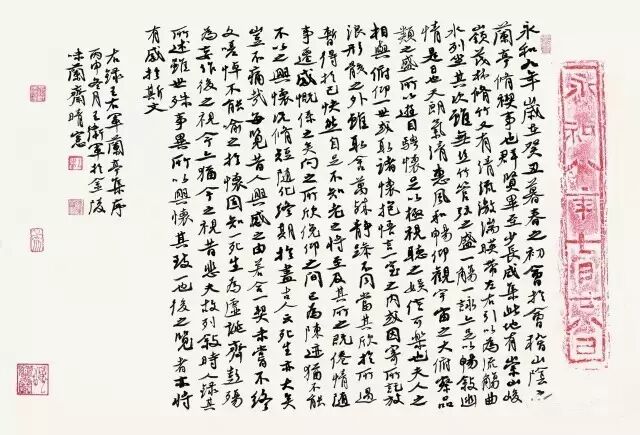 永和九年歲在癸丑暮春之初會於會稽山陰之
蘭亭脩禊事也群賢畢至少長咸集此地有崇山峻
嶺茂林脩竹又有清流激湍暎帶左右引以為流觴曲
水列坐其次雖無絲竹管弦之盛一觴一詠亦足以暢敘幽
情是日也天朗氣清惠風和暢仰觀宇宙之大俯察品
類之盛所以遊目騁懷足以極視聽之娛信可樂也夫人之
相與俯仰一世或取諸懷抱悟言一室之內或因寄所託放
浪形骸之外雖取舍萬殊靜躁不同當其欣於所遇
暫得於己快然自足不知老之將至及其所之既倦情隨
事遷感慨係之矣向之所欣俯仰之間已為陳迹猶不能
不以之興懷況脩短隨化終期於盡古人云死生亦大矣
豈不痛哉每覽昔人興感之由若合一契未嘗不臨
文嗟悼不能喻之於懷固知死生為虛誕齊彭殤
為妄作後之視今亦猶今之視昔悲夫故列敘時人錄其
所述雖世殊事異所以興懷其致一也後之覽者亦將
有感於斯文
右錄王右軍蘭亭集序
丙申冬月王衛軍於金陵
味蘭齋晴窗